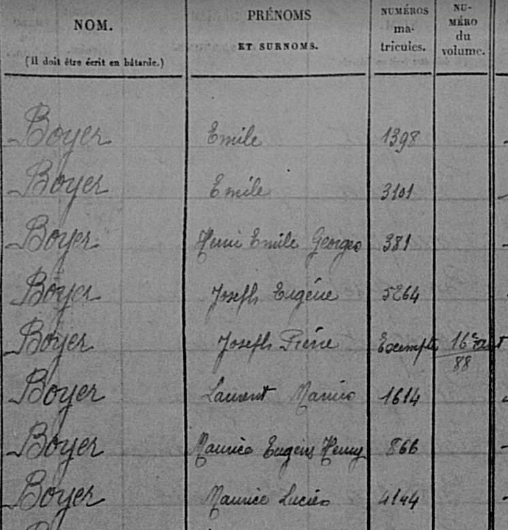 NOM.
(Il doit être écrit en bâtarde.)
PRÉNOMS
ET SURNOMS.
NUMÉROS
ma-
tricules.
NU-
MÉRO
du
volume.
Boyer Emile 1398
Boyer Emile 3101
Boyer Henri Emile Georges 381
Boyer Joseph Eugène 5264
Boyer Joseph Pierre Exempté 16
88
Boyer Laurent Marius 1614
Boyer Maurice Eugène Henry 866
Boyer Maurice Lucien 4144